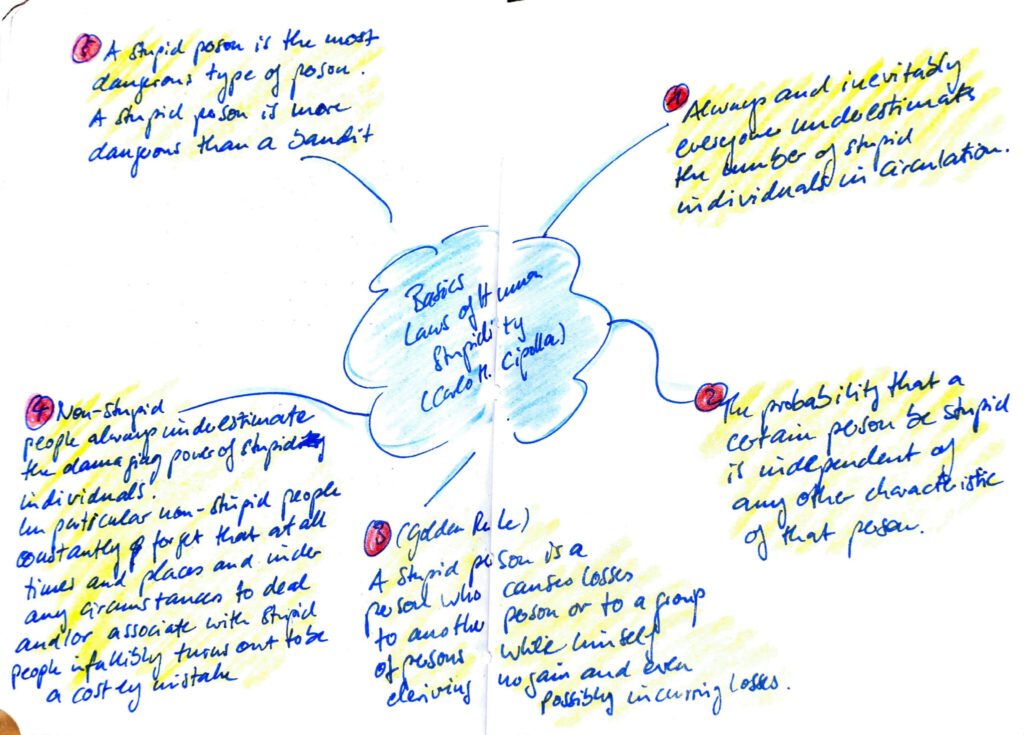 Basics
Laws of Human
Stupidity
(Carlo M. Cipolla)
1 Always and inevitably
everyone underestimates
the number of stupid
individuals in circulation.
2 The probability that a
certain person be stupid
is independent of
any other characteristic
of that person.
3 (Golden Rule)
A stupid person is a
person who causes losses
to another person or to a group
of persons while himself
deriving no gain and even
possibly incurring losses.
4 Non-stupid
people always underestimate
the damaging power of stupid
individuals.
In particular non-stupid people
constantly forget that at all
times and places and under
any circumstances to deal
and/or associate with stupid
people infallibly turns out to be
a costly mistake
5 A stupid person is the most
dangerous type of person.
A stupid person is more
dangerous than a bandit